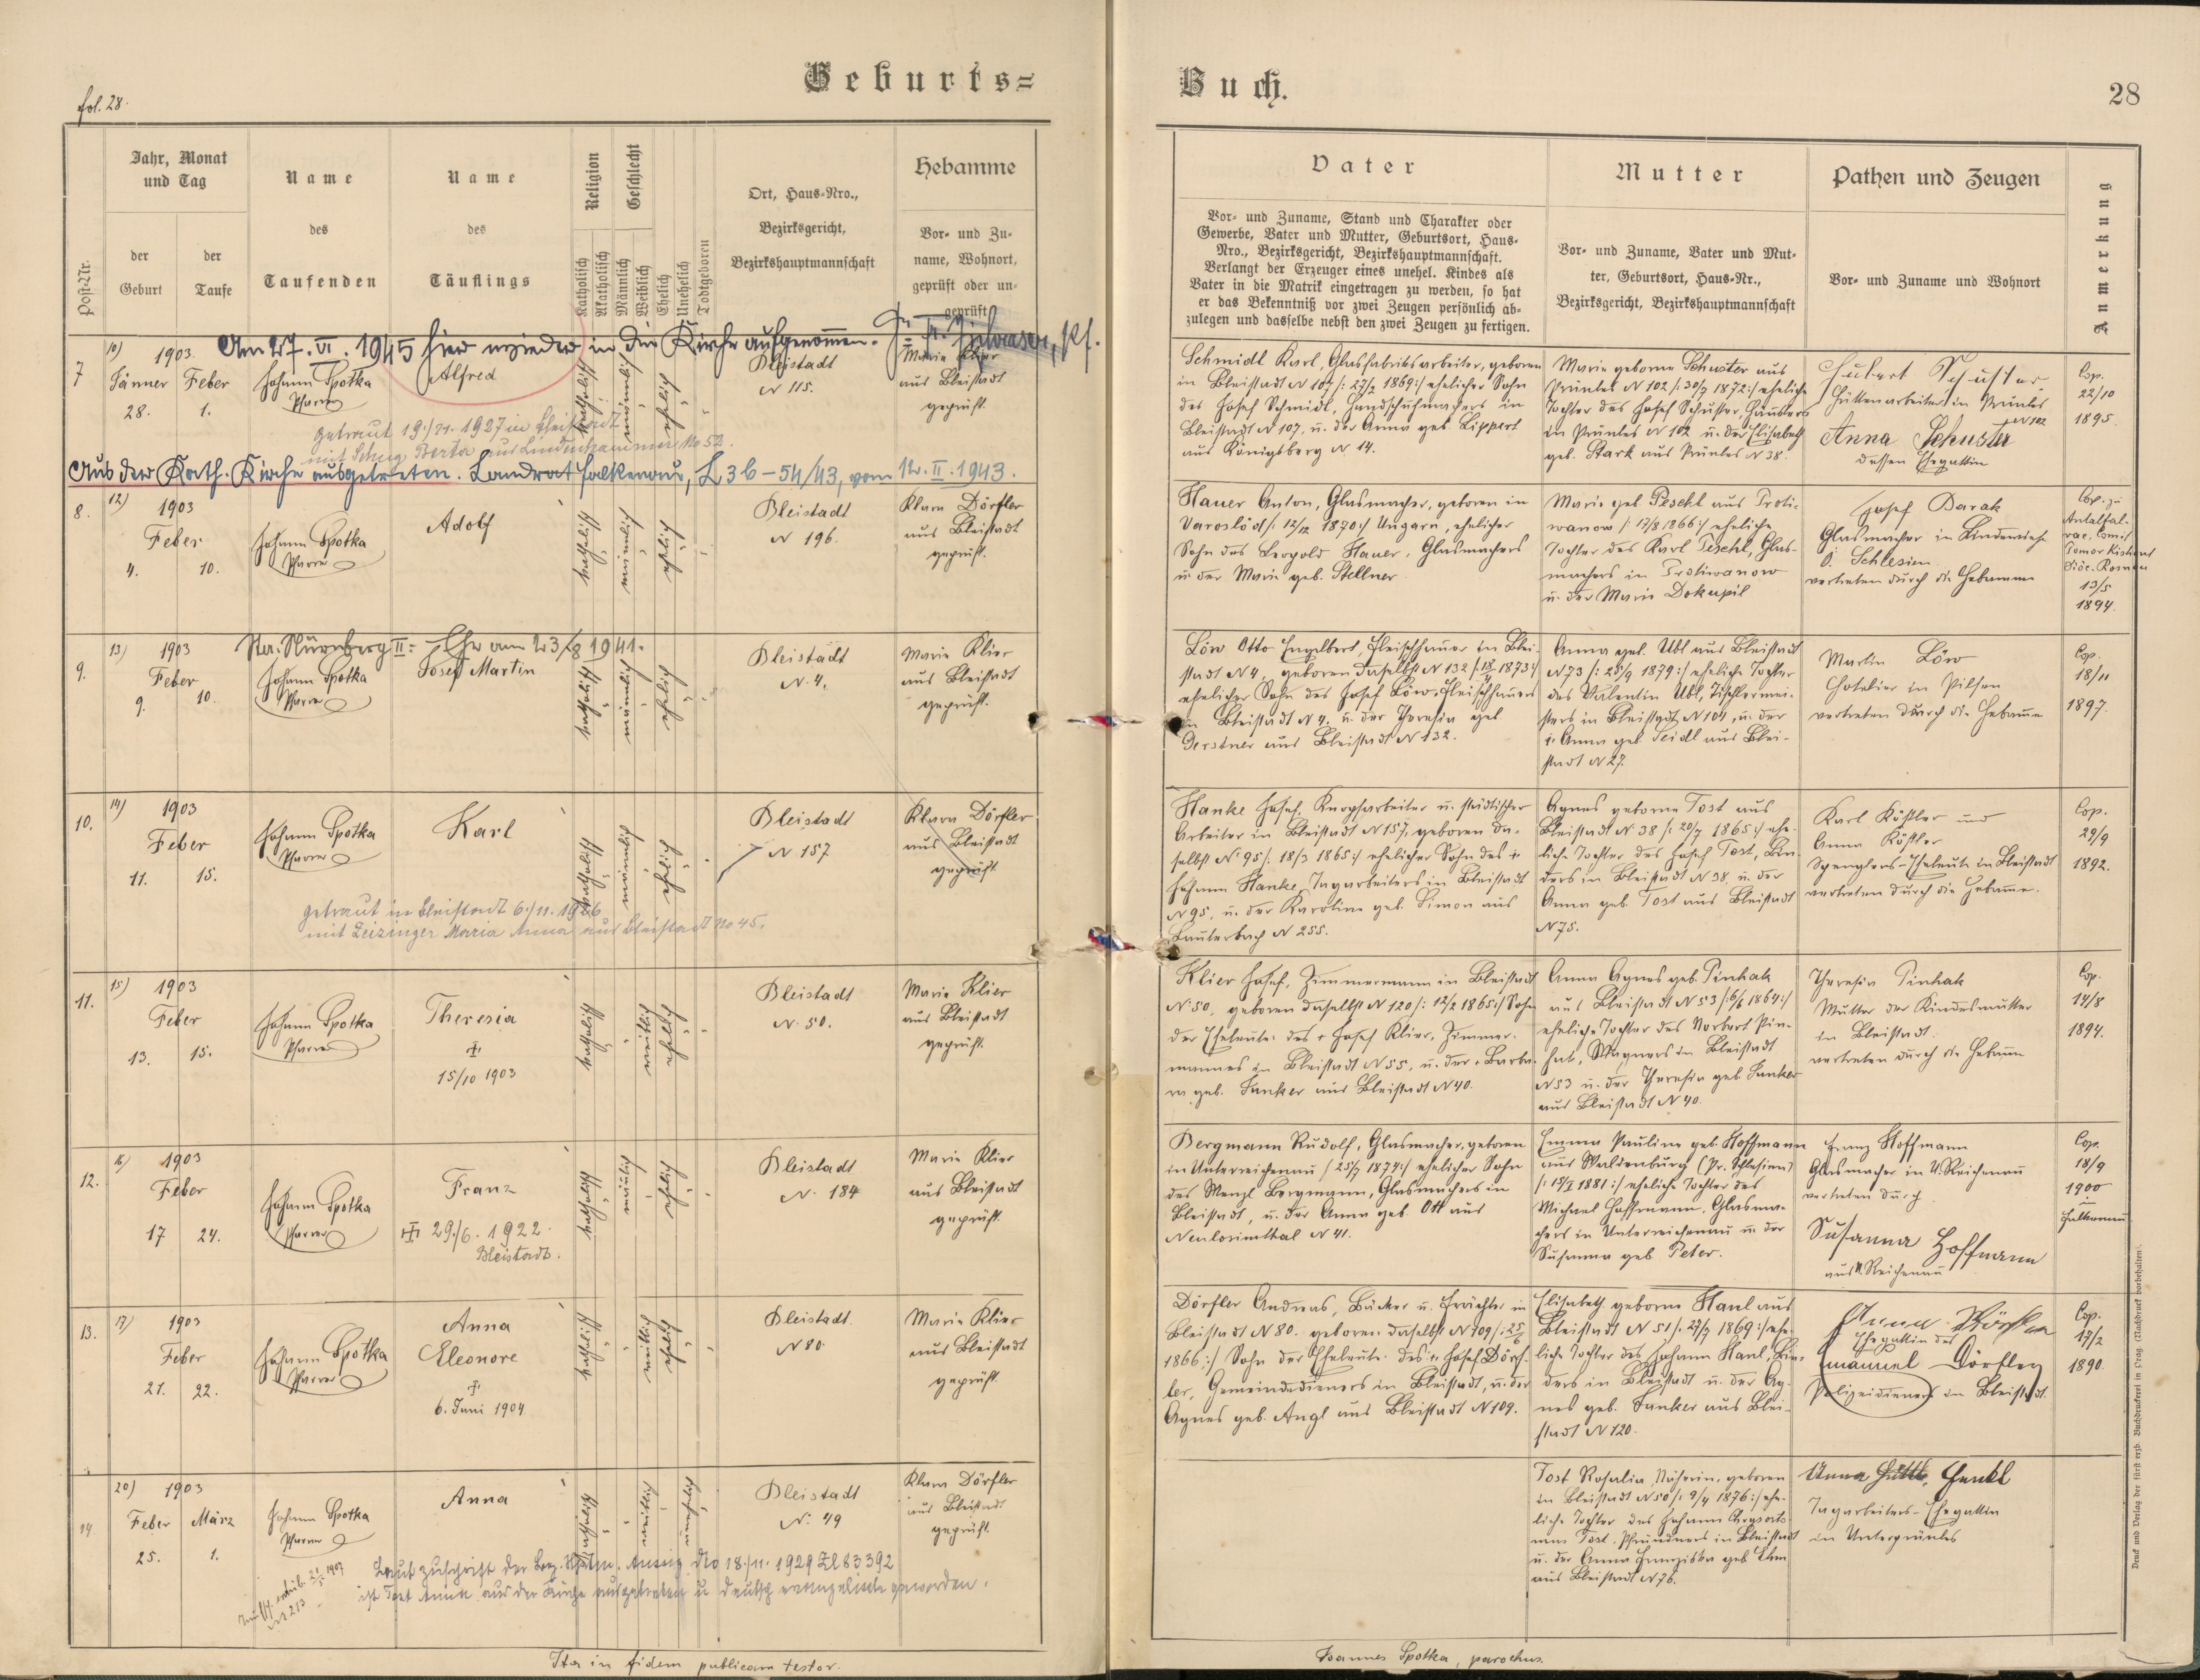 fol. 28.
Geburts=
Buch.
28
Post-Nr.
Jahr, Monat
und Tag
der
Geburt
der
Taufe
Name
des
Taufenden
Name
des
Täuflings
Religion
Katholisch
Akatholisch
Geschlecht
Männlich
Weiblich
Ehelich
Unehelich
Todtgeboren
Ort, Haus-Nro.,
Bezirksgericht,
Bezirkshauptmannschaft
Hebamme
Vor- und Zu-
name, Wohnort,
geprüft oder un-
geprüft
Vater
Vor- und Zuname, Stand und Charakter oder
Gewerbe, Vater und Mutter, Geburtsort, Haus-
Nro., Bezirksgericht, Bezirkshauptmannschaft.
Verlangt der Erzeuger eines unehel. Kindes als
Vater in die Matrik eingetragen zu werden, so hat
er das Bekenntniß vor zwei Zeugen persönlich ab-
zulegen und dasselbe nebst den zwei Zeugen zu fertigen.
Mutter
Vor- und Zuname, Vater und Mut-
ter, Geburtsort, Haus-Nr.,
Bezirksgericht, Bezirkshauptmannschaft
Pathen und Zeugen
Vor- und Zuname und Wohnort
Anmerkung
Am 27. VI. 1945 hier wieder in die Kirche aufgenommen.
7
10)
1903.
Jänner Feber
28. 1.
Johann Spotka
Pfarrer
Alfred
katholisch
männlich
ehelich
Bleistadt
N 115.
Marie Klier
aus Bleistadt
geprüft.
Schmidl Karl, Glasfabriksarbeiter, geboren
in Bleistadt N 107 /: 27/2 1869:/ ehelicher Sohn
des Josef Schmidl, Handschuhmachers in
Bleistadt N 107, u. der Anna geb. Lippert
aus Königsberg N 14.
Marie geborne Schuster aus
Prünles N 102 /: 30/7 1872:/ eheliche
Tochter des Josef Schuster, Häuslers
in Prünles N 102 u. der Elisabeth
geb. Stark aus Prünles N 38.
Hubert Schuster
Hüttenarbeiter in Prünles
N 102
Anna Schuster
dessen Ehegattin
Cop.
22/10
1895.
getraut 19./21. 1927 in Bleistadt
mit Schug Berta aus Lindenhammer No 52.
Aus der Kath. Kirche ausgetreten. Landrat Falkenau, L 3b – 54/43, vom 12. II. 1943.
8.
12)
1903
Feber
4. 10.
Johann Spotka
Pfarrer
Adolf
katholisch
männlich
ehelich
Bleistadt
N 196.
Klara Dörfler
aus Bleistadt
geprüft.
Hauer Anton, Glasmacher, geboren in
Varoslöd /: 12/12 1870:/ Ungarn, ehelicher
Sohn des Leopold Hauer, Glasmachers
u der Marie geb. Stellner
Marie geb Peschl aus Proti-
wanow /: 17/8 1866:/ eheliche
Tochter des Karl Peschl, Glas-
machers in Protiwanow
u. der Marie Dokupil
Josef Barak
Glasmacher in Lindewiese
Ö. Schlesien
vertreten durch die Hebamme
Cop. zu
Antalfal-
13/5
1894.
9.
13)
1903
Feber
9. 10.
Sta. Nürnberg II: Ehe am 23/8 1941.
Johann Spotka
Pfarrer
Josef Martin
katholisch
männlich
ehelich
Bleistadt
N. 4.
Marie Klier
aus Bleistadt
geprüft.
Löw Otto Engelbert, Fleischhauer in Blei-
stadt N 4, geboren daselbst N 132 /: 18/4 1873:/
ehelicher Sohn des Josef Löw, Fleischhauers
in Bleistadt N 4. u. der Theresia geb
Gerstner aus Bleistadt N 132.
Anna geb. Ubl aus Bleistadt
N 73 /: 25/9 1879:/ eheliche Tochter
des Valentin Ubl, Tischlermei-
sters in Bleistadt N 104, u. der
† Anna geb. Seidl aus Blei-
stadt N 27.
Martin Löw
Hotelier in Pilsen
vertreten durch die Hebamme
Cop.
18/11
1897.
10.
14)
1903
Feber
11. 15.
Johann Spotka
Pfarrer
Karl
katholisch
männlich
ehelich
Bleistadt
N 157
Klara Dörfler
aus Bleistadt
geprüft.
Hanke Josef, Knopfarbeiter u. städtischer
Arbeiter in Bleistadt N 157, geboren da-
selbst N 95 /: 18/3 1865:/ ehelicher Sohn des †
Johann Hanke, Tagarbeiters in Bleistadt
N 95, u. der Karoline geb. Simon aus
Lauterbach N 255.
Agnes geborne Tost aus
Bleistadt N 38 /: 20/7 1865:/ ehe-
liche Tochter des Josef Tost, Bin-
ders in Bleistadt N 38 u. der
Anna geb. Tost aus Bleistadt
N 75.
Karl Köstler und
Anna Köstler
Spenglers-Eheleute in Bleistadt
vertreten durch die Hebamme.
Cop.
29/9
1892.
getraut in Bleistadt 6./11. 1926
mit Leizinger Maria Anna aus Bleistadt No 45.
11.
15)
1903
Feber
13. 15.
Johann Spotka
Pfarrer
Theresia
†
15/10 1903
katholisch
weiblich
ehelich
Bleistadt
N. 50.
Marie Klier
aus Bleistadt
geprüft.
Klier Josef, Zimmermann in Bleistadt
N. 50, geboren daselbst N 120 /: 12/2 1865:/ Sohn
der Eheleute des † Josef Klier, Zimmer-
mannes in Bleistadt N 55, u. der † Barba-
ra geb. Sanker aus Bleistadt N 40.
Anna Agnes geb. Pinhak
aus Bleistadt N 53 /: 6/6 1864:/
eheliche Tochter des Norbert Pin-
hak, Wagners in Bleistadt
N 53 u. der Theresia geb Sanker
aus Bleistadt N 40.
Theresia Pinhak
Mutter der Kindesmutter
in Bleistadt.
vertreten durch die Hebamme
Cop.
14/8
1894.
12.
16)
1903
Feber
17 24.
Johann Spotka
Pfarrer
Franz
† 29./6. 1922.
Bleistadt.
katholisch
männlich
ehelich
Bleistadt
N. 184
Marie Klier
aus Bleistadt
geprüft.
Bergmann Rudolf, Glasmacher, geboren
in Unterreichenau /: 25/7 1874:/ ehelicher Sohn
des Wenzl Bergmann, Glasmachers in
Bleistadt, u. der Anna geb. Ott aus
Neulosimthal N 41.
Emma Pauline geb. Hoffmann
aus Waldenburg (Pr. Schlesien)
/: 15/I 1881:/ eheliche Tochter des
Michael Hoffmann, Glasma-
chers in Unterreichenau u. der
Susanna geb Peter.
Franz Hoffmann
Glasmacher in U. Reichenau
vertreten durch
Susanna Hoffmann
aus U. Reichenau
Cop.
18/9
1900
in
Falkenau
13.
17)
1903
Feber
21. 22.
Johann Spotka
Pfarrer
Anna
Eleonore
†
6. Juni 1904
katholisch
weiblich
ehelich
Bleistadt.
N 80
Marie Klier
aus Bleistadt
geprüft.
Dörfler Andreas, Bäcker u. Frächter in
Bleistadt N 80. geboren daselbst N 109 /: 25/6
1866:/ Sohn der Eheleute des † Josef Dörf-
ler, Gemeindedieners in Bleistadt, u. der
Agnes geb. Angl aus Bleistadt N 109.
Elisabeth geborne Hanl aus
Bleistadt N 51 /: 27/7 1869:/ ehe-
liche Tochter des Johann Hanl, Bin-
ders in Bleistadt u. der Ag-
nes geb. Sanker aus Blei-
stadt N 120.
Anna Dörfler
Ehegattin des
Emanuel Dörfler
Polizeidieners in Bleistadt.
Cop.
17/2
1890.
14
20)
1903
Feber März
25. 1.
Johann Spotka
Pfarrer
Anna
katholisch
weiblich
unehelich
Bleistadt
N. 49
Klara Dörfler
aus Bleistadt
geprüft.
Tost Rosalia, Näherin, geboren
in Bleistadt N 50 /: 9/4 1876:/ ehe-
liche Tochter des Johann
Tost, Pfründners in Bleistadt
u. der Anna Franziska geb.
aus Bleistadt N 76.
Anna Henkl
Tagarbeiters-Ehegattin
in Unterprünles
N 213
Laut Zuschrift der Bez. Aussig No 18./11. 1929 Zl 83392
ist Tost Anna aus der Kirche ausgetreten u deutsch evangelisch geworden.
Ita in fidem publicam testor.
Joannes Spotka, parochus.
Druck und Verlag der fürst erzb. Buchdruckerei in Prag. (Nachdruck vorbehalten).